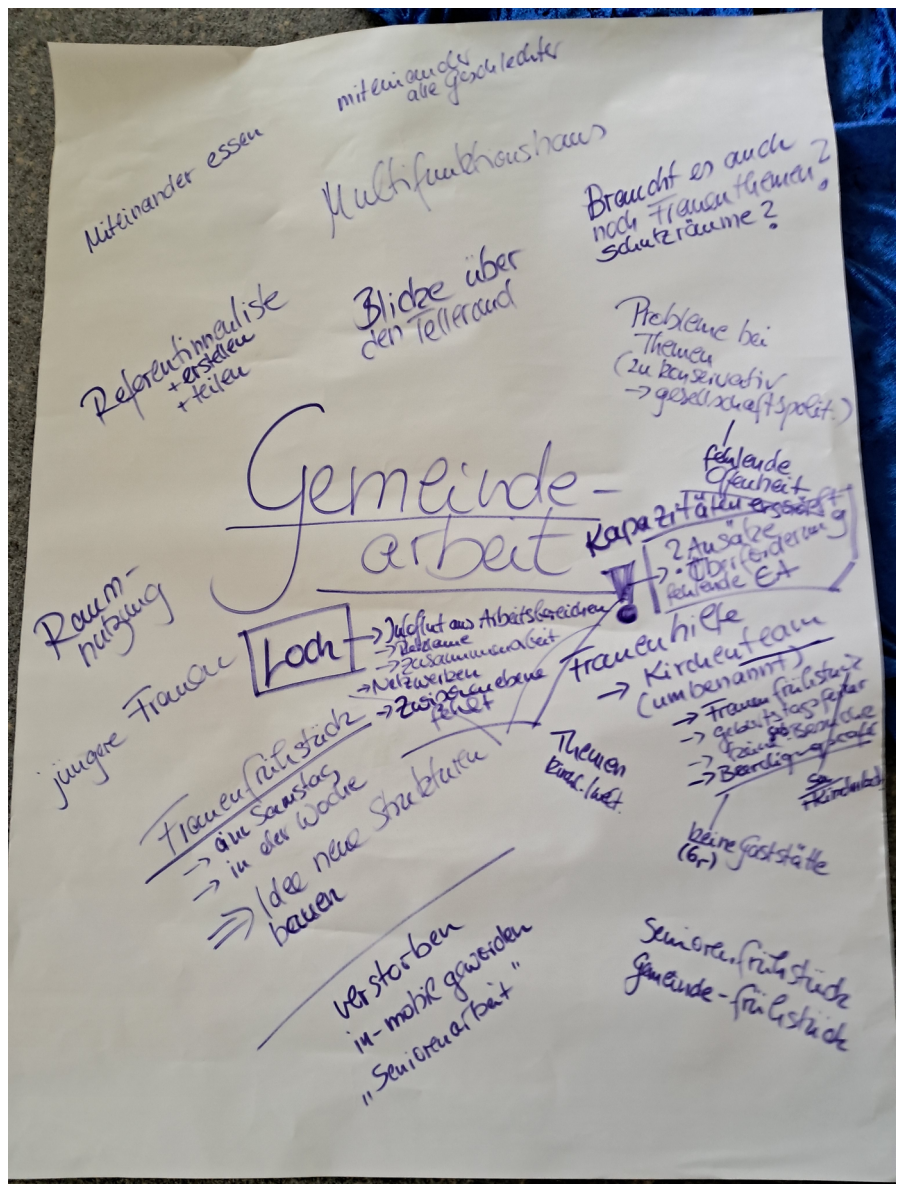 miteinander
alle Geschlechter
Miteinander essen
Multifunktionshaus
Braucht es auch
noch Frauenthemen?
schutzräume?
Blicke über
den Tellerand
Referentinnenliste
+ erstellen
+ teilen
Probleme bei
Themen
(zu konservativ
→ gesellschaftspolit.)
fehlende
Offenheit
Gemeinde-
arbeit
Kapazitäten erschöpft
→ 2 Ansätze
• Überforderung
fehlende EA
!
Raum-
nutzung
jüngere Frauen
Loch
→ Input aus Arbeitsbereichen
→ Zusammenarbeit
→ Netzwerken
→ Zwischenebene
fehlt
Frauenhilfe
→ Kirchenteam
(umbenannt)
→ Frauenfrühstück
→ geburtstagsfeier
→ Beerdigungscafé
keine Gaststätte
(Gr)
Themen
Frauenfrühstück
→ am Samstag,
→ in der Woche
⇒ Idee neue Strukturen
bauen
verstorben
in-mobil geworden
„Seniorenarbeit"
Seniorenfrühstück
Gemeinde-frühstück